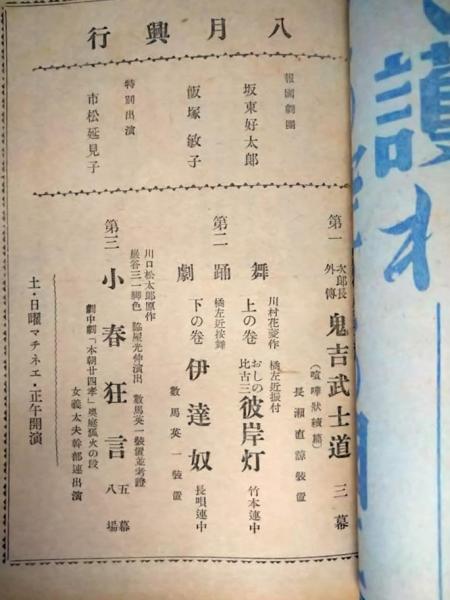 八月興行
報國劇團
坂東好太郎
飯塚敏子
特別出演
市松延見子
第一 次郎長外傳 鬼吉武士道 三幕
(喧嘩状續篇)
長瀬直諒裝置
川村花菱作 橘左近振付
第二 舞踊劇
上の卷 おしの比古三 彼岸灯 竹本連中
橘左近按舞
下の卷 伊達奴 長唄連中
數馬英一裝置
川口松太郎原作
巌谷三一脚色 脇屋光伸演出 數馬英一裝置並考證
第三 小春狂言 五幕八場
劇中劇「本朝廿四孝」奥庭狐火の段
女義太夫幹部連出演
土・日曜マチネエ・正午開演
護れ